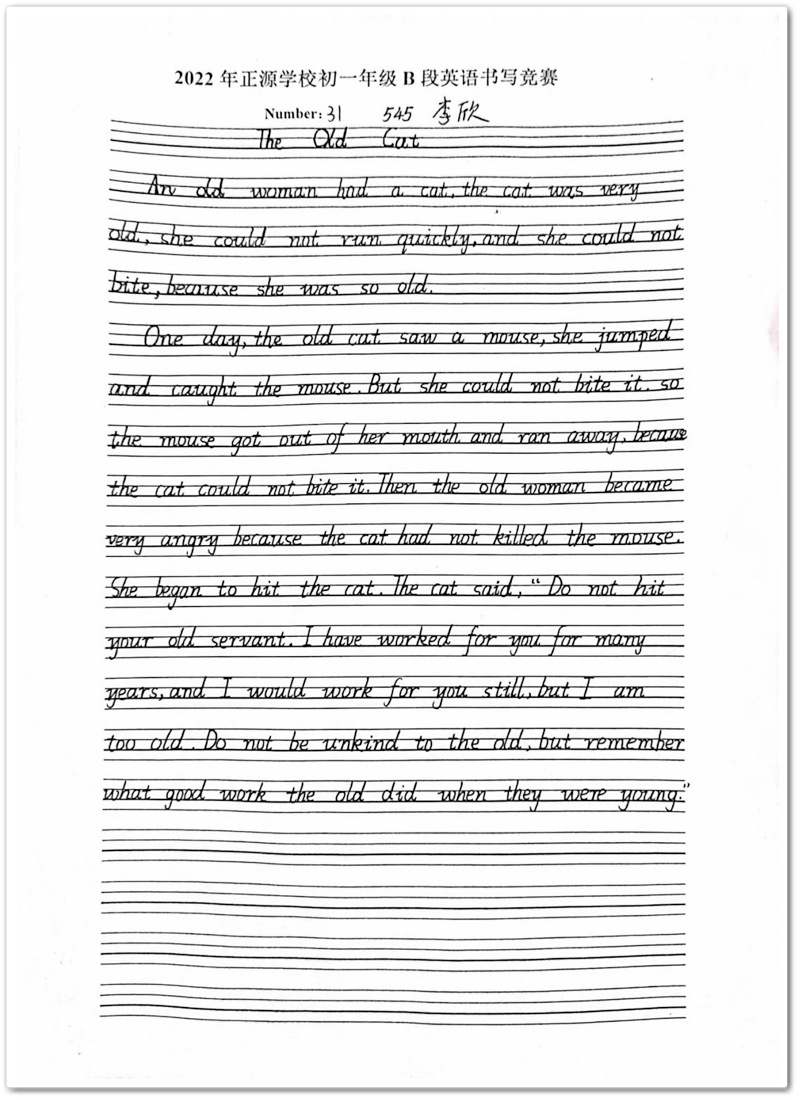 2022年正源学校初一年级B段英语书写竞赛
Number: 31 545 李欣
The Old Cat
An old woman had a cat, the cat was very
old, she could not run quickly, and she could not
bite, because she was so old.
One day, the old cat saw a mouse, she jumped
and caught the mouse. But she could not bite it. so
the mouse got out of her mouth and ran away, because
the cat could not bite it. Then the old woman became
very angry because the cat had not killed the mouse.
She began to hit the cat. The cat said, “Do not hit
your old servant. I have worked for you for many
years, and I would work for you still, but I am
too old. Do not be unkind to the old, but remember
what good work the old did when they were young.”